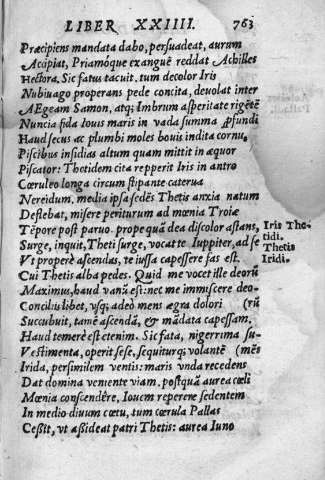 LIBER XXIIII. 763
Præcipiens mandata dabo, persuadeat, aurum
Accipiat, Priamóque exanguē reddat Achilles
Hectora. Sic fatus tacuit. tum decolor Iris
Nubiuago properans pede concita, deuolat inter
AEgeam Samon, atq; Imbrum asperitate rigētē
Nuncia fida Iouis maris in vada summa ꝓfundi
Haud secus ac plumbi moles bouis indita cornu,
Piscibus insidias altum quam mittit in æquor
Piscator: Thetidem cita repperit Iris in antro
Cœruleo longa circum stipante caterua
Nereidum. media ipsa sedēs Thetis anxia natum
Deflebat, misere periturum ad mœnia Troiæ
Tēpore post paruo. prope quā dea discolor astans,
Iris The-
tidi.
Surge, inquit, Theti surge, vocat te Iuppiter, ad se
Thetis
Iridi.
Vt properè ascendas, te iussa capessere fas est.
Cui Thetis alba pedes. Quid me vocet ille deorū
Maximus, haud vanū est: nec me immiscere deo-
Conciliis libet, vsq; adeò mens ægra dolori (rū
Succubuit, tamē ascendā, & mādata capessam.
Haud temerè est etenim. Sic fata, nigerrima su-
Vestimenta, operit sese, sequiturq; volantē (mēs
Irida, persimilem ventis: maris vnda recedens
Dat domina venienti viam. postquā aurea cœli
Mœnia conscendēre, Iouem reperere sedentem
In medio diuum cœtu, tum cœrula Pallas
Cessit, vt assideat patri Thetis: aurea Iuno